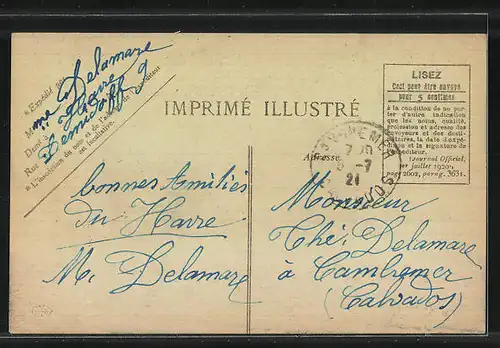 * Expédié par
Mme Delamare
Demt à Havre
Rue Demidoff 9
* L'inscription du nom et de l'adresse
est facultative.
IMPRIMÉ ILLUSTRÉ
LISEZ
Ceci peut être envoyé
pour 5 centimes
à la condition de ne por-
ter d'autre indication
que les noms, qualité,
profession et adresse des
envoyeurs et des desti-
nataires, la date d'expé-
dition et la signature de
l'expéditeur.
(Journal Officiel,
1er juillet 1920,
page 2602, parag. 363).
Adresse
7
-7
21
bonnes Amitiés
du Havre
M. Delamare
Monsieur
Thé. Delamare
à Cambremer
(Calvados)